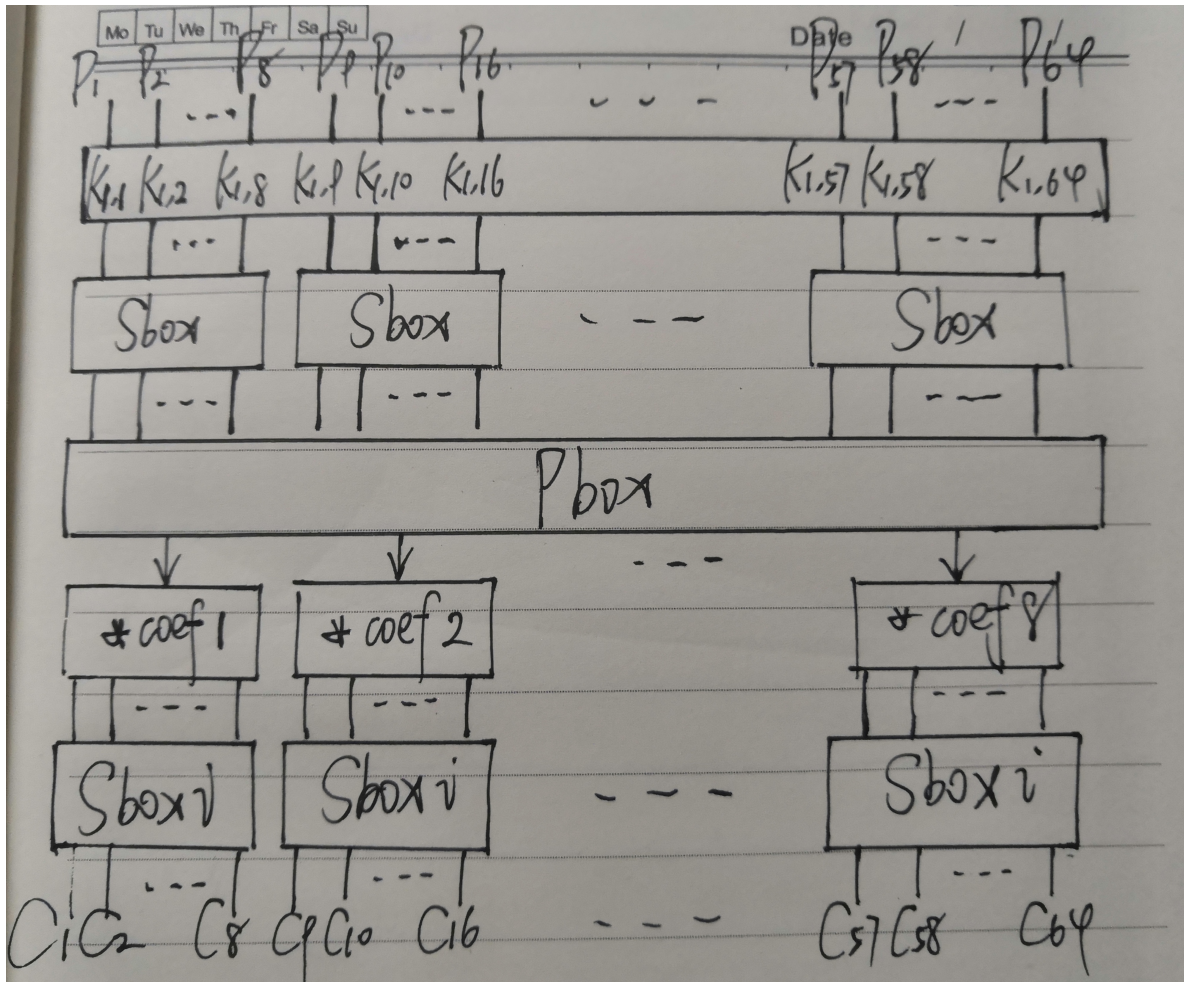 Mo Tu We Th Fr Sa Su
Date /
P1 P2 P8 P9 P10 P16 P57 P58 P64
K1,1 K1,2 K1,8 K1,9 K1,10 K1,16 K1,57 K1,58 K1,64
Sbox Sbox Sbox
Pbox
*coef1 *coef2 *coef8
Sboxi Sboxi Sboxi
C1 C2 C8 C9 C10 C16 C57 C58 C64